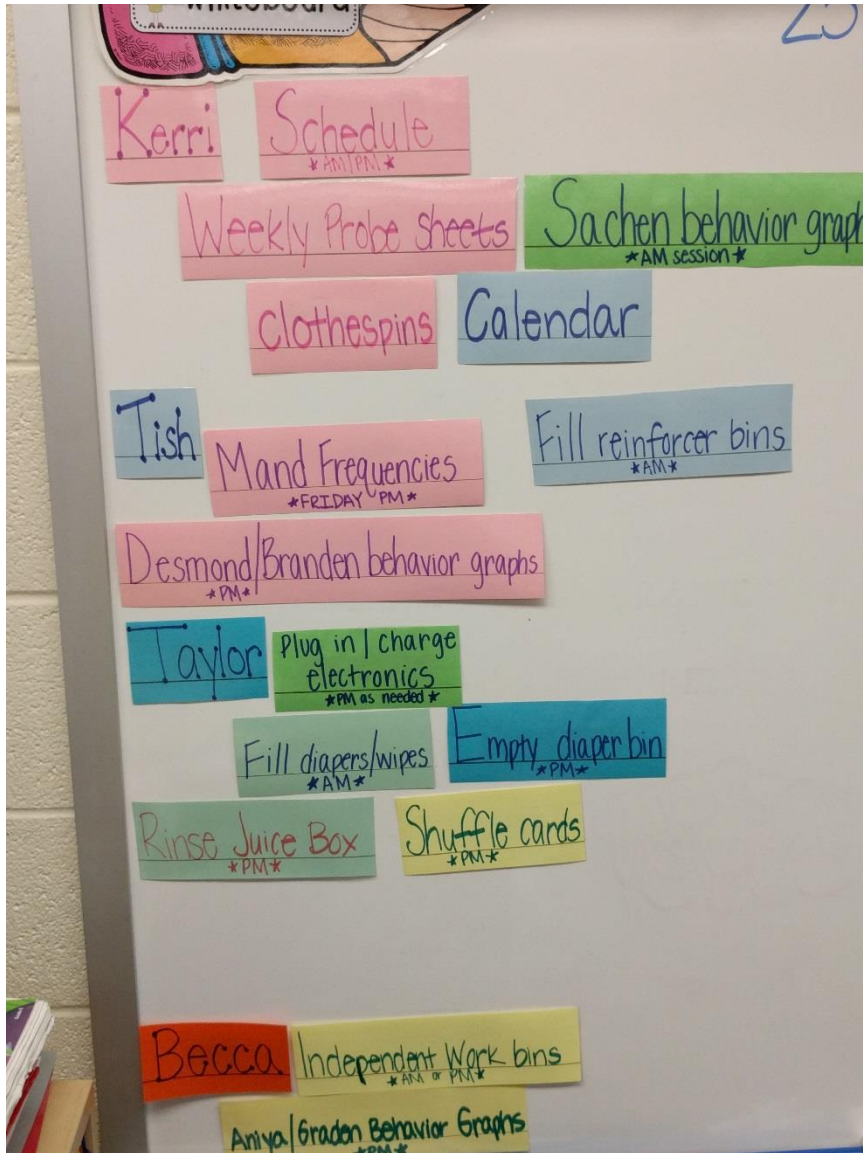 whiteboard
25
Kerri
Schedule
*AM/PM*
Weekly Probe Sheets
Sachen behavior graph
*AM session*
clothespins
Calendar
Tish
Mand Frequencies
*FRIDAY PM*
Fill reinforcer bins
*AM*
Desmond/Branden behavior graphs
*PM*
Taylor
Plug in/charge
electronics
*PM as needed*
Fill diapers/wipes
*AM*
Empty diaper bin
*PM*
Rinse Juice Box
*PM*
Shuffle cards
*PM*
Becca
Independent Work bins
*AM or PM*
Aniya/Graden Behavior Graphs
*PM*